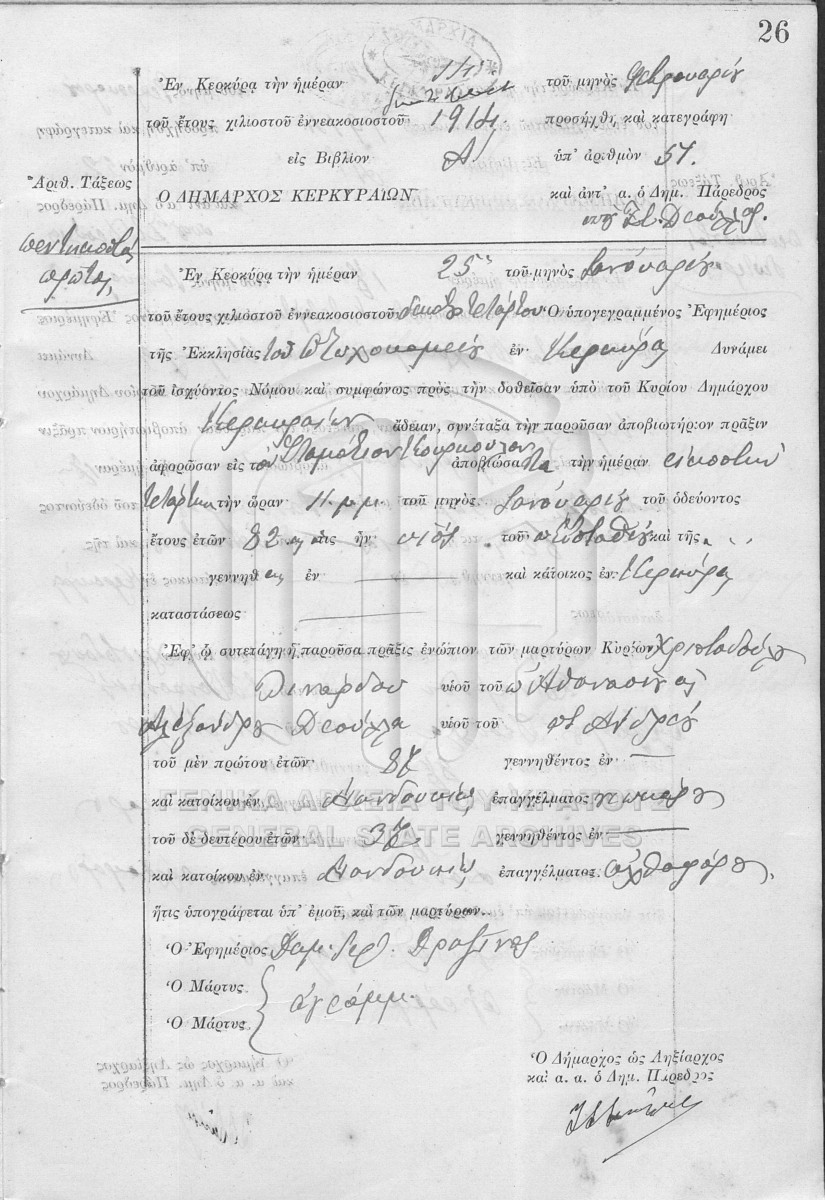 26
Ἐν Κερκύρᾳ τὴν ἡμέραν 14ην τοῦ μηνὸς Φεβρουαρίου
τοῦ ἔτους χιλιοστοῦ ἐννεακοσιοστοῦ 1914. προσήχθη καὶ κατεγράφη
εἰς Βιβλίον Α! ὑπ' ἀριθμὸν 51.
Ἀριθ. Τάξεως
Ο ΔΗΜΑΡΧΟΣ ΚΕΡΚΥΡΑΙΩΝ καὶ ἀντ' α. ὁ Δημ. Πάρεδρος
πεντηκοστή
πρώτη
Ἐν Κερκύρᾳ τὴν ἡμέραν 25ην τοῦ μηνὸς Ἰανουαρίου
τοῦ ἔτους χιλιοστοῦ ἐννεακοσιοστοῦ δεκάτου τετάρτου Ὁ ὑπογεγραμμένος Ἐφημέριος
τῆς Ἐκκλησίας τοῦ Πτωχοκομείου ἐν Κερκύρᾳ Δυνάμει
τοῦ ἰσχύοντος Νόμου καὶ συμφώνως πρὸς τὴν δοθεῖσαν ὑπὸ τοῦ Κυρίου Δημάρχου
Κερκυραίων ἄδειαν, συνέταξα τὴν παροῦσαν ἀποβιωτήριον πρᾶξιν
ἀφορῶσαν εἰς τὸν Σταμάτιον Κούρκουλον ἀποβιώσαντα τὴν ἡμέραν εἰκοστὴν
τετάρτην τὴν ὥραν 11 μ.μ. τοῦ μηνὸς Ἰανουαρίου τοῦ ὁδεύοντος
ἔτους ἐτῶν 82 ὅστις ἦν υἱὸς τοῦ π Εὐσταθίου καὶ τῆς
γεννηθεὶς ἐν καὶ κάτοικος ἐν Κερκύρᾳ
καταστάσεως
Ἐφ' ᾧ συνετάγη ἡ παροῦσα πρᾶξις ἐνώπιον τῶν μαρτύρων Κυρίων Χριστοδούλου
υἱοῦ τοῦ π Ἀθανασίου
Ἀλεξάνδρου υἱοῦ τοῦ π Ἀνδρέου
τοῦ μὲν πρώτου ἐτῶν γεννηθέντος ἐν
καὶ κατοίκου ἐν ἐπαγγέλματος
ΓΕΝΙΚΑ ΑΡΧΕΙΑ ΤΟΥ ΚΡΑΤΟΥΣ
τοῦ δὲ δευτέρου ἐτῶν γεννηθέντος ἐν
GENERAL STATE ARCHIVES
καὶ κατοίκου ἐν ἐπαγγέλματος ἀχθοφόρου
ἥτις ὑπογράφεται ὑπ' ἐμοῦ, καὶ τῶν μαρτύρων.
Ὁ Ἐφημέριος
Ὁ Μάρτυς
ἀγράμμ.
Ὁ Μάρτυς
Ὁ Δήμαρχος ὡς Ληξίαρχος
καὶ α. α. ὁ Δημ. Πάρεδρος